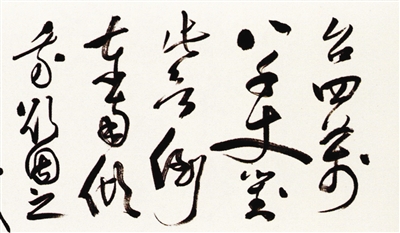 台四萬
八千丈對
此欲倒
東南傾
我欲因之